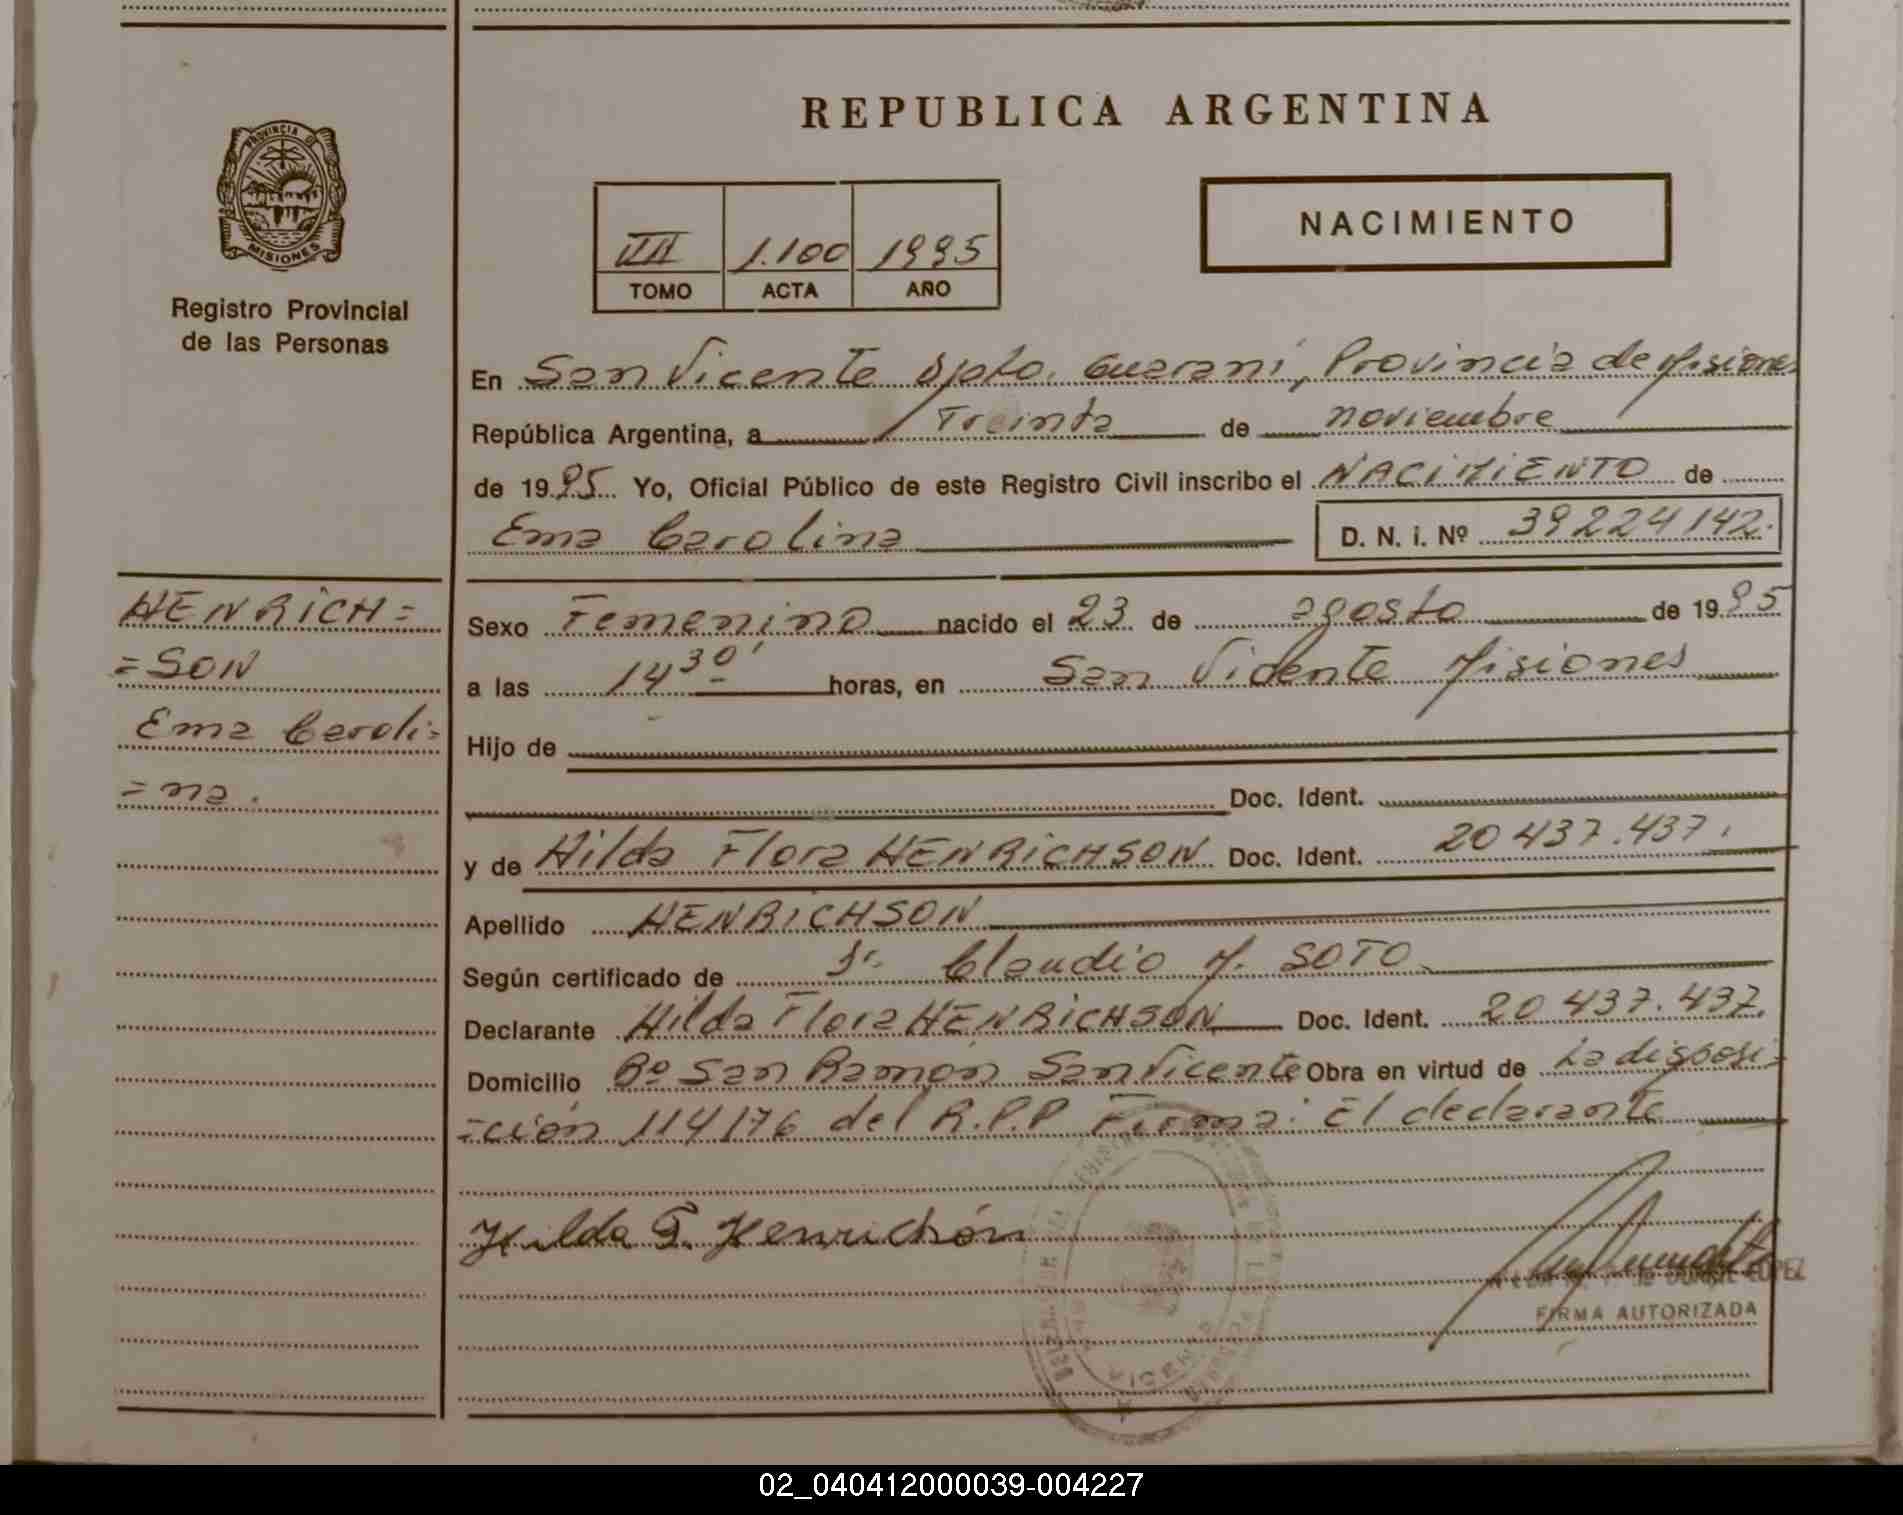 PROVINCIA DE
MISIONES
Registro Provincial
de las Personas
HENRICH=
=SON
Ema Caroli=
=na.
REPUBLICA ARGENTINA
III 1.100 1995
TOMO ACTA AÑO
NACIMIENTO
En San Vicente Dpto. Guaraní, Provincia de Misiones
República Argentina, a Treinta de noviembre
de 1995 Yo, Oficial Público de este Registro Civil inscribo el NACIMIENTO de
Ema Carolina D. N. i. Nº 39224142.
Sexo Femenino nacido el 23 de agosto de 1995
a las 14 30' horas, en San Vicente Misiones
Hijo de
Doc. Ident.
y de Hilda Flora HENRICHSON Doc. Ident. 20 437.437.
Apellido HENRICHSON
Según certificado de Dr. Claudio M. SOTO
Declarante Hilda Flora HENRICHSON Doc. Ident. 20 437.437.
Domicilio Bº San Ramón San Vicente Obra en virtud de La disposi=
=ción 114/76 del R.P.P Firma: El declarante
Hilda F. Henrichón
LOPEZ
FIRMA AUTORIZADA
02_040412000039-004227